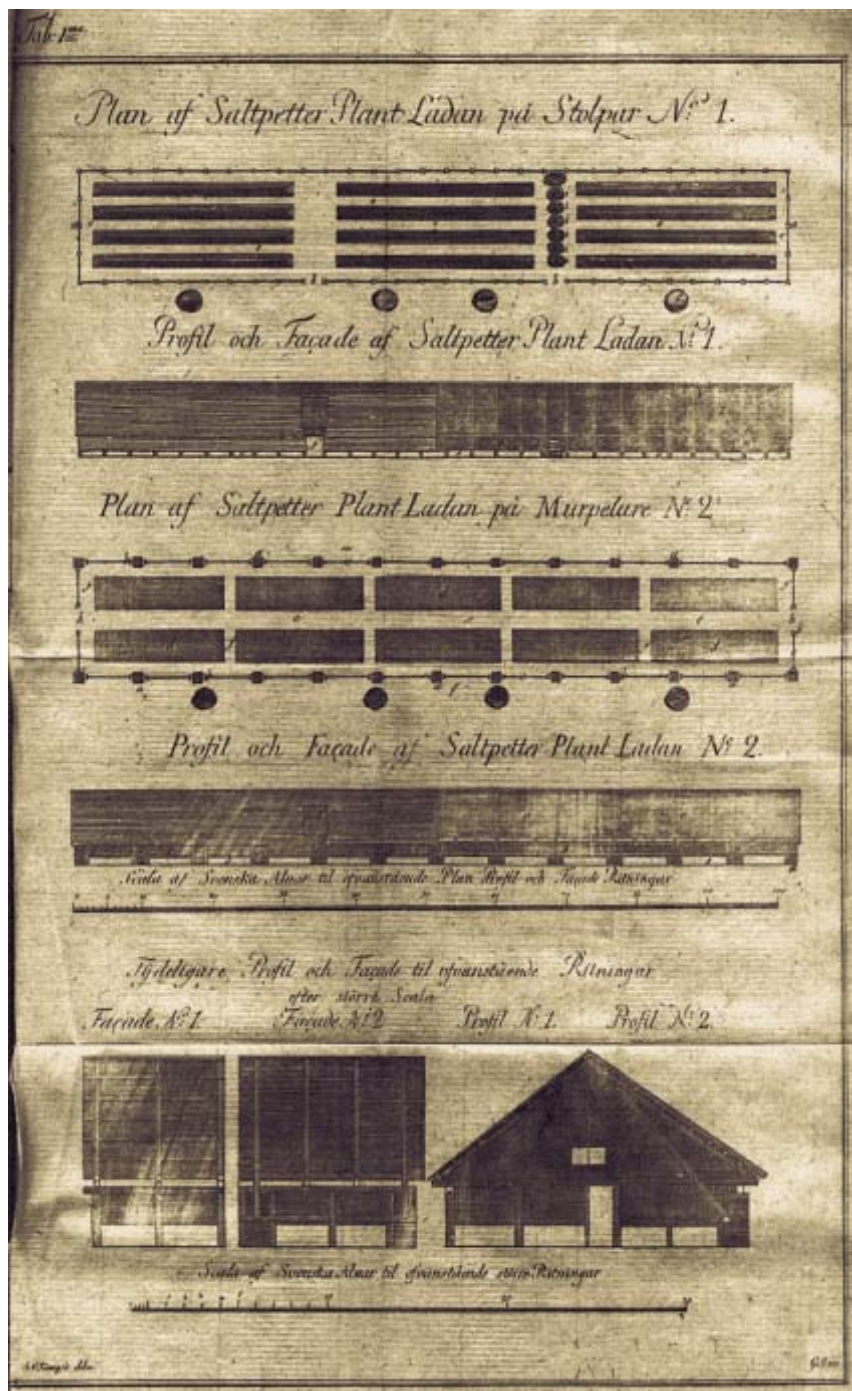 Tab. 1ma
Plan af Saltpetter Plant Ladan på Stolpar No 1.
Profil och Façade af Saltpetter Plant Ladan No 1.
Plan af Saltpetter Plant Ladan på Murpelare No 2
Profil och Façade af Saltpetter Plant Ladan No 2.
Scala af Svenska Alnar til ofvanstående Plan Profil och Façade Ritningar
Tydeligare Profil och Façade til ofvanstående Ritningar
efter större Scala
Façade No 1. Façade No 2 Profil No 1. Profil No 2.
Scala af Svenska Alnar til ofvanstående större Ritningar